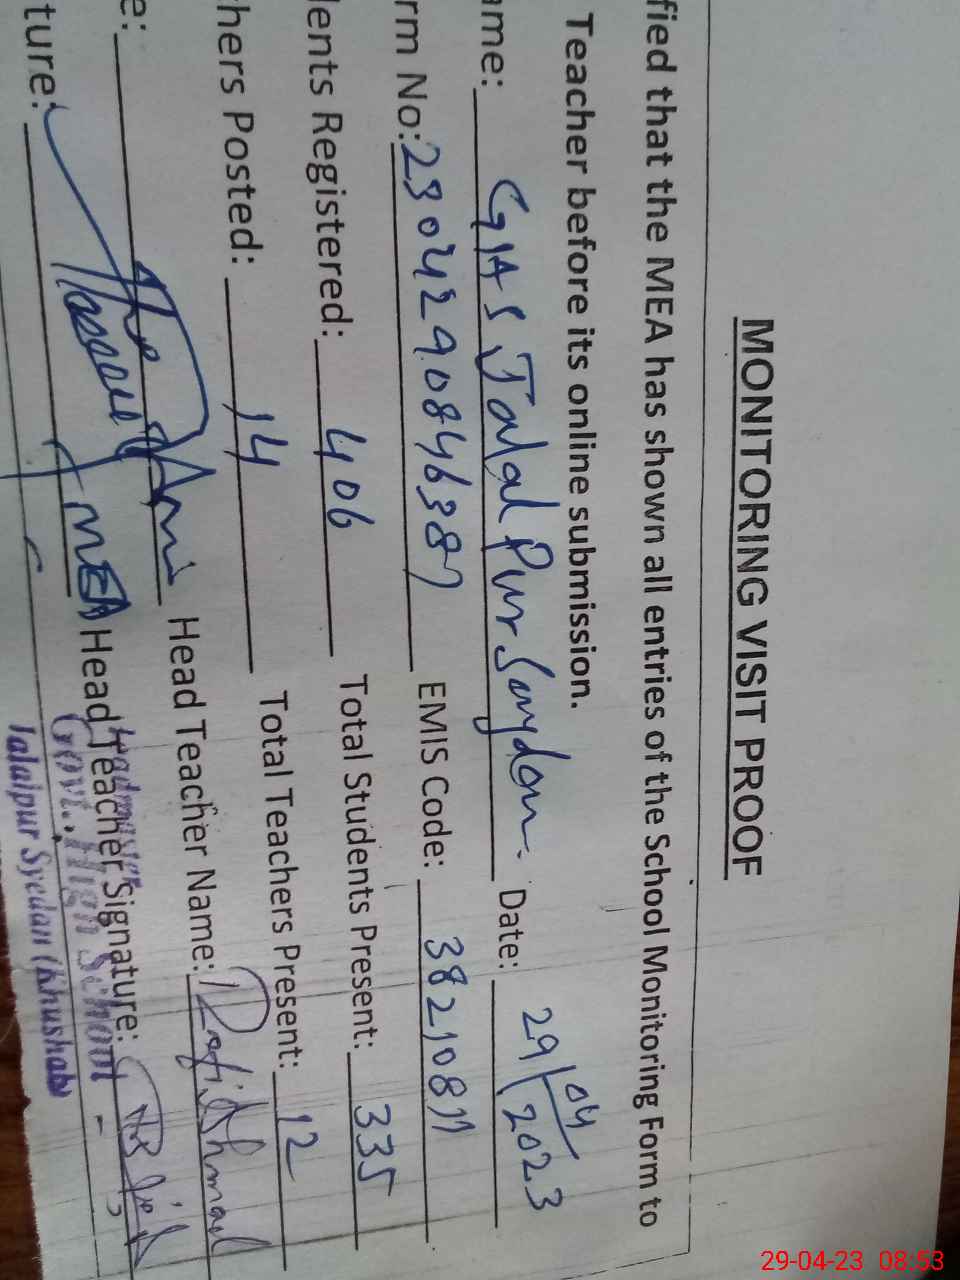 MONITORING VISIT PROOF
fied that the MEA has shown all entries of the School Monitoring Form to
Teacher before its online submission.
ame: GHS Jalal Pur Seydan. Date: 29/04/2023
rm No: 23042908463 EMIS Code: 38210811
dents Registered: 406 Total Students Present: 335
hers Posted: 14 Total Teachers Present: 12
e: Head Teacher Name: Rafi Ahmad
ture: MEA Head Teacher Signature:
Headmaster
Govt. High School
Jalalpur Syedan (Khushab)
29-04-23 08:53